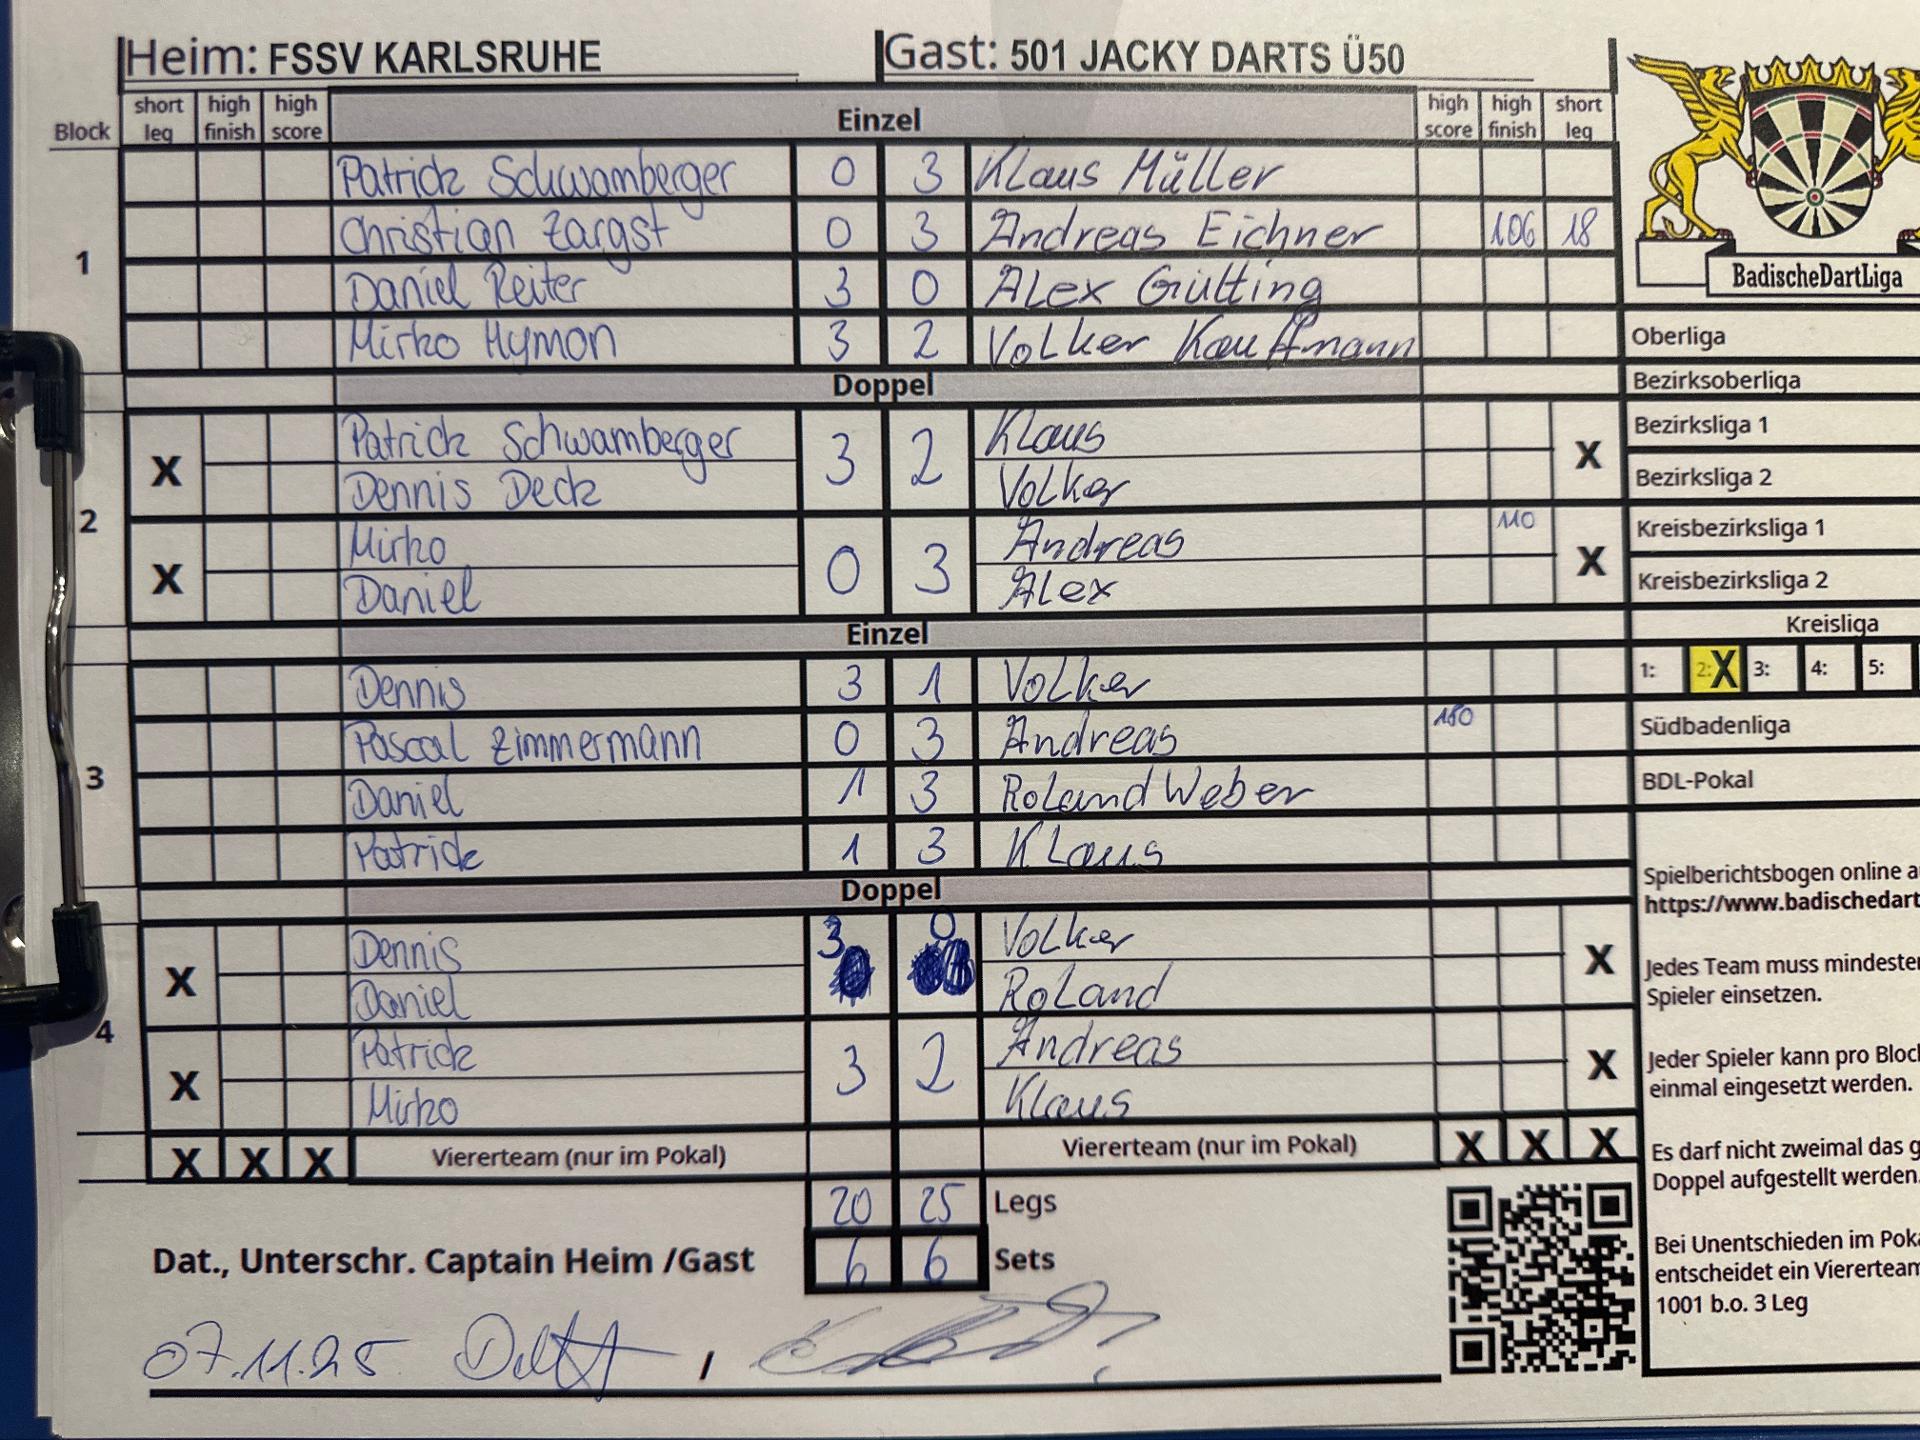 Heim: FSSV KARLSRUHE Gast: 501 JACKY DARTS Ü50
Block short leg high finish high score Einzel high score high finish short leg
1
Patrick Schwamberger 0 3 Klaus Müller
Christian Zargst 0 3 Andreas Eichner 106 18
Daniel Reiter 3 0 Alex Gütting
Mirko Hymon 3 2 Volker Kauffmann
Doppel
2
X Patrick Schwamberger 3 2 Klaus X
Dennis Deck Volker
X Mirko 0 3 Andreas 110 X
Daniel Alex
Einzel
3
Dennis 3 1 Volker
Pascal Zimmermann 0 3 Andreas 180
Daniel 1 3 Roland Weber
Patrick 1 3 Klaus
Doppel
4
X Dennis 3 0 Volker X
Daniel Roland
X Patrick 3 2 Andreas X
Mirko Klaus
X X X Viererteam (nur im Pokal) Viererteam (nur im Pokal) X X X
20 25 Legs
Dat., Unterschr. Captain Heim /Gast 6 6 Sets
07.11.25 /
BadischeDartLiga
Oberliga
Bezirksoberliga
Bezirksliga 1
Bezirksliga 2
Kreisbezirksliga 1
Kreisbezirksliga 2
Kreisliga
1: 2: X 3: 4: 5:
Südbadenliga
BDL-Pokal
Spielberichtsbogen online a
https://www.badischedart
Jedes Team muss mindester
Spieler einsetzen.
Jeder Spieler kann pro Block
einmal eingesetzt werden.
Es darf nicht zweimal das g
Doppel aufgestellt werden.
Bei Unentschieden im Poka
entscheidet ein Viererteam
1001 b.o. 3 Leg